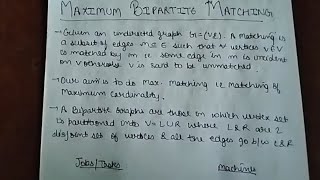 MAXIMUM BIPARTITE MATCHING
→ Given an undirected graph G=(V,E). A matching is
a subset of edges M ⊆ E such that ∀ vertices v ∈ V
is matched by M i.e some edge in M is incident
on v otherwise v is said to be unmatched.
→ Our aim is to do Max. matching i.e matching of
Maximum Cardinality.
→ A Bipartite Graphs are those in which vertex set
is partitioned into V = L U R where L & R are 2
disjoint set of vertices & all the edges go b/w L & R
Jobs/Tasks Machines